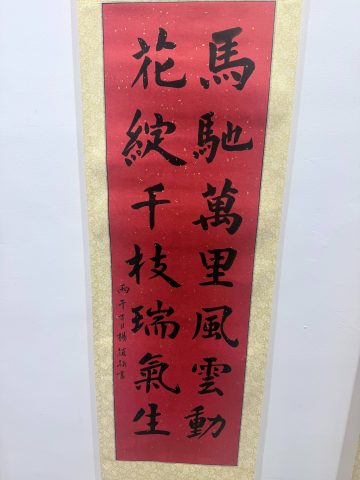 馬馳萬里風雲動
花綻千枝瑞氣生
丙午